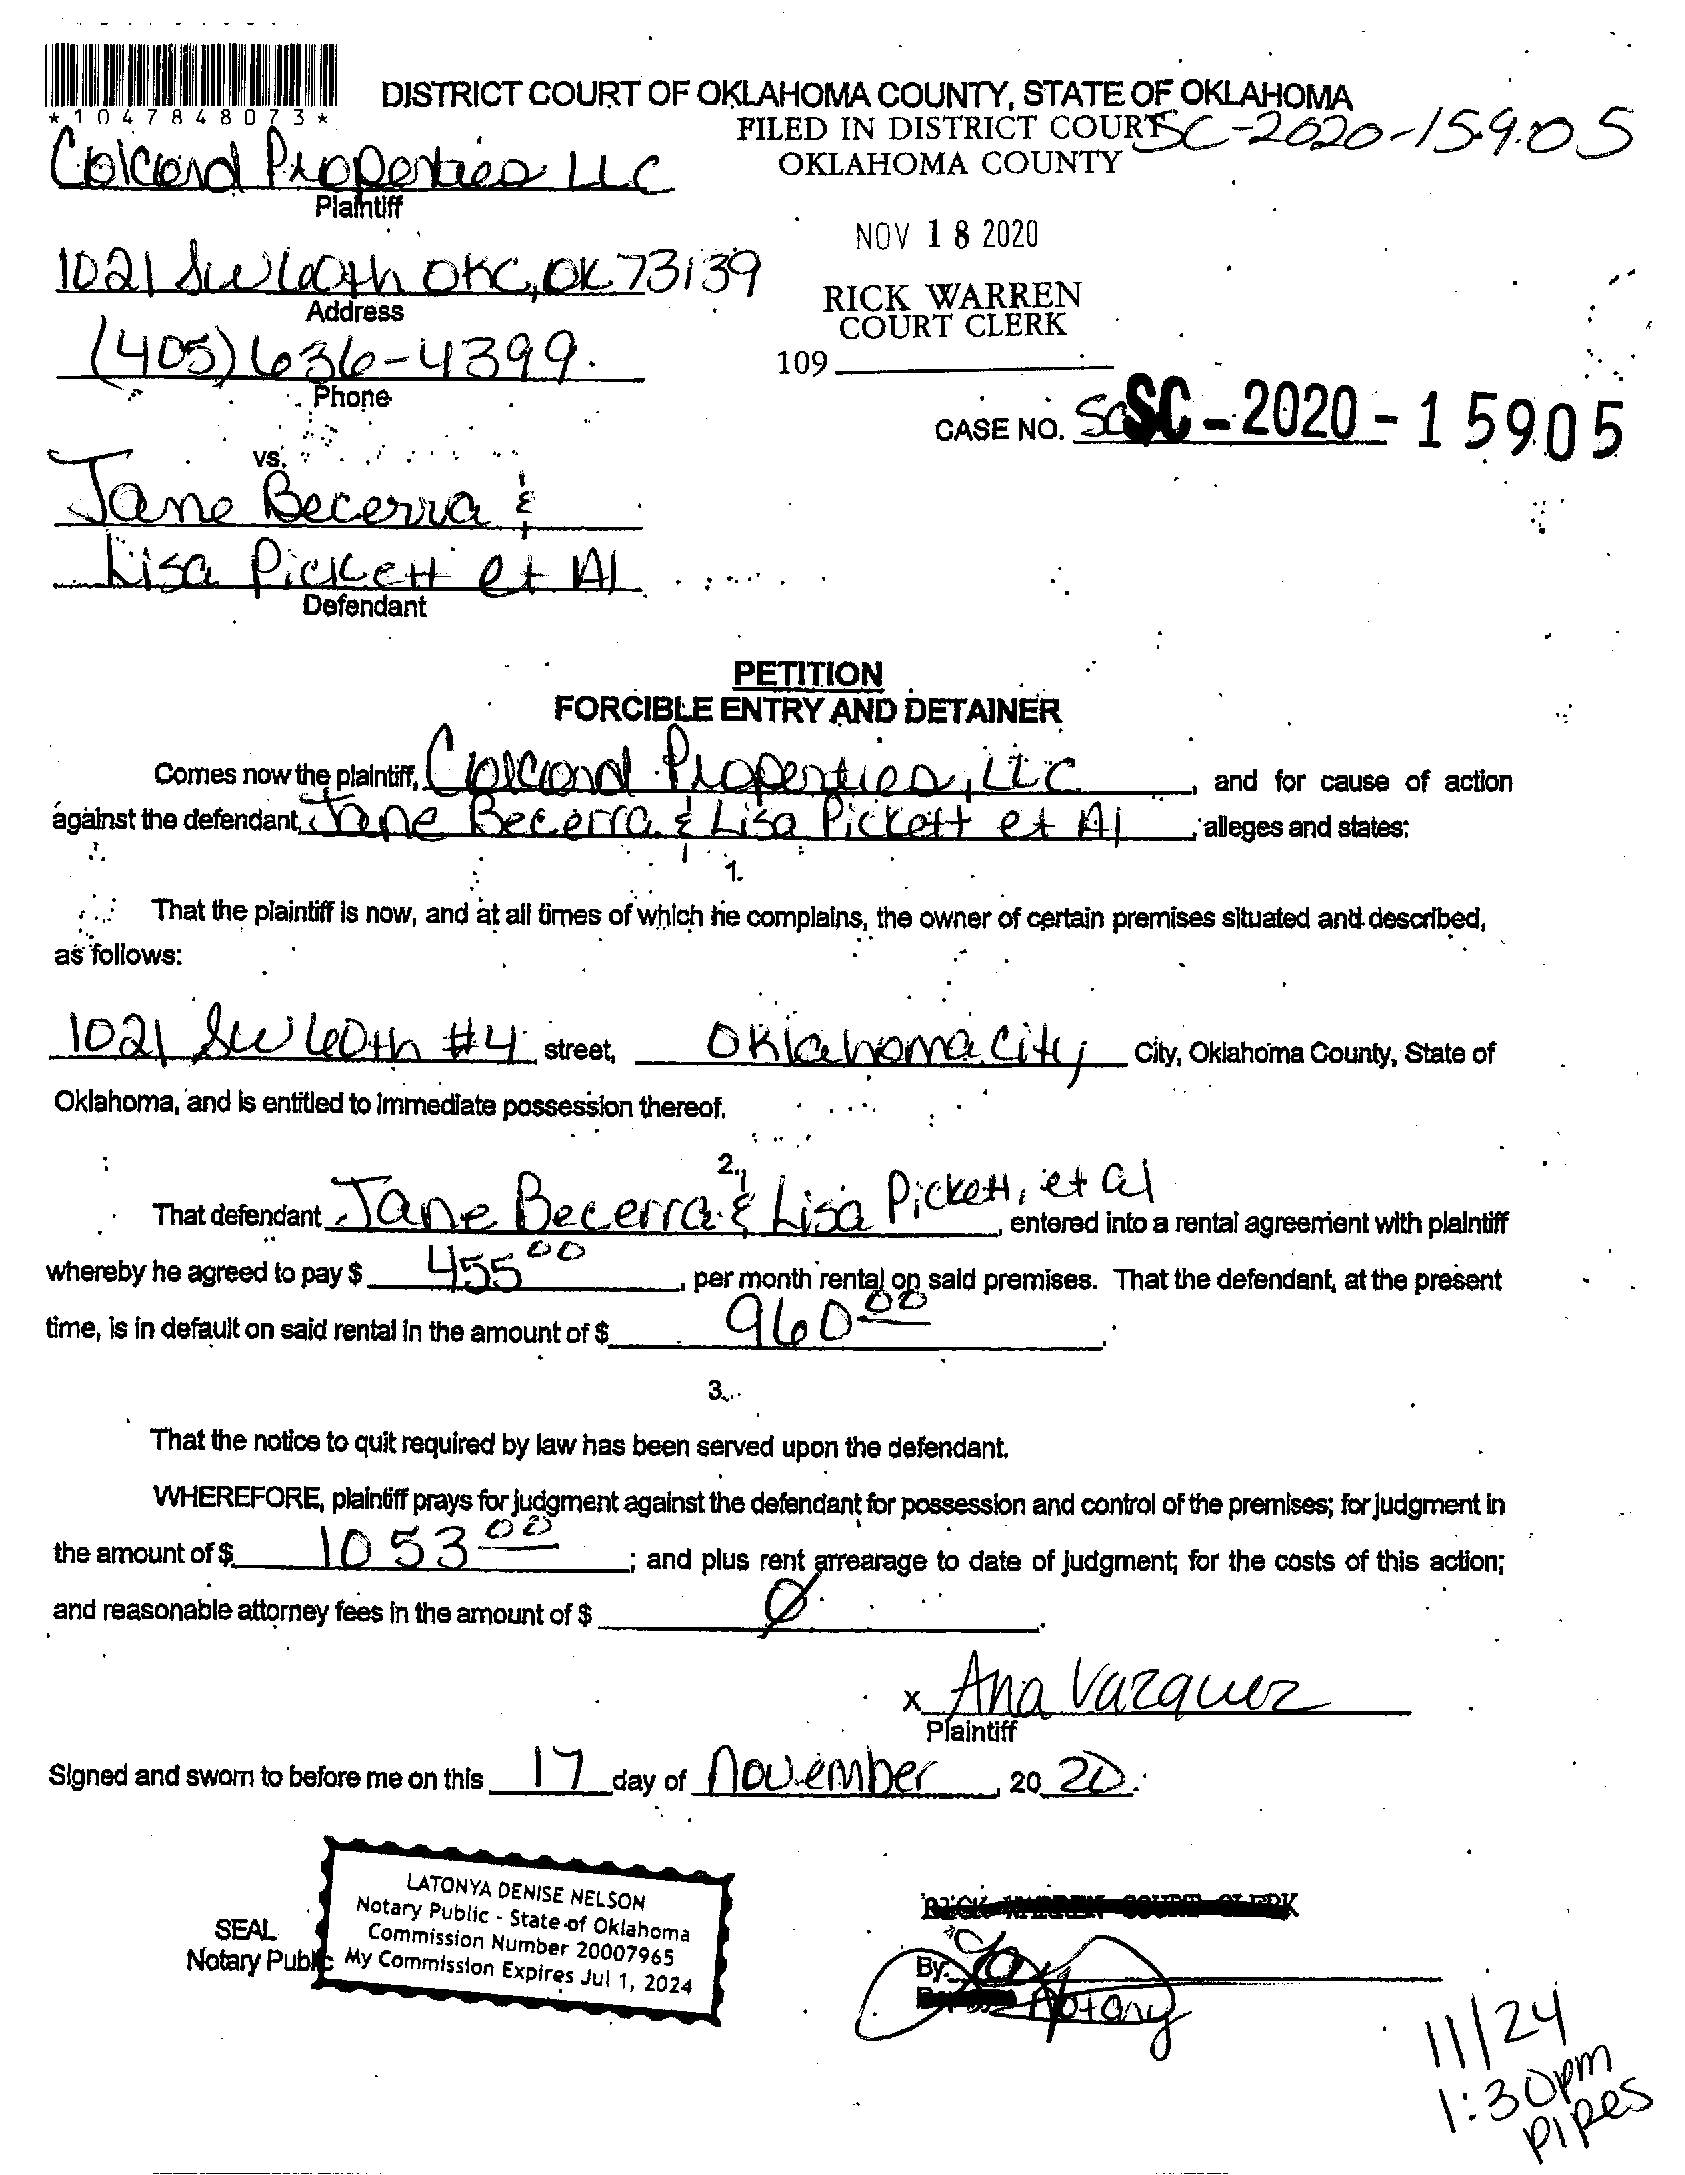 *1047848073*
DISTRICT COURT OF OKLAHOMA COUNTY, STATE OF OKLAHOMA
FILED IN DISTRICT COURT
OKLAHOMA COUNTY
SC-2020-15905
Colcord Properties LLC
Plaintiff
NOV 18 2020
1021 SW 60th OKC, OK 73139
Address
RICK WARREN
COURT CLERK
(405) 636-4399
Phone
109
CASE NO. SC SC-2020-15905
vs.
Jane Becerra &
Lisa Pickett et Al
Defendant
PETITION
FORCIBLE ENTRY AND DETAINER
Comes now the plaintiff, Colcord Properties, LLC, and for cause of action
against the defendant, Jane Becerra & Lisa Pickett et Al, alleges and states:
1.
That the plaintiff is now, and at all times of which he complains, the owner of certain premises situated and described,
as follows:
1021 SW 60th #4 street, Oklahoma City City, Oklahoma County, State of
Oklahoma, and is entitled to immediate possession thereof.
2.
That defendant Jane Becerra & Lisa Pickett, et al, entered into a rental agreement with plaintiff
whereby he agreed to pay $ 455 00, per month rental on said premises. That the defendant, at the present
time, is in default on said rental in the amount of $ 960 00.
3.
That the notice to quit required by law has been served upon the defendant.
WHEREFORE, plaintiff prays for judgment against the defendant for possession and control of the premises; for judgment in
the amount of $ 1053 00; and plus rent arrearage to date of judgment; for the costs of this action;
and reasonable attorney fees in the amount of $ Ø.
x Ana Vazquez
Plaintiff
Signed and sworn to before me on this 17 day of November, 20 20.
LATONYA DENISE NELSON
Notary Public - State of Oklahoma
Commission Number 20007965
My Commission Expires Jul 1, 2024
SEAL
Notary Public
RICK WARREN COURT CLERK
By:
Notary
11/24
1:30pm
Pipes